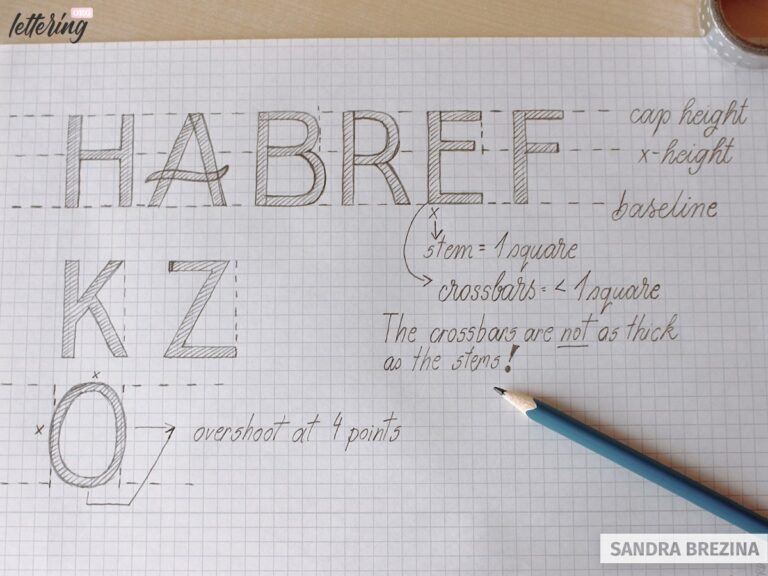 lettering.ORG
HABREF
cap height
x-height
baseline
x
stem = 1 square
crossbars = < 1 square
The crossbars are not as thick
as the stems!
KZ
x
x O
overshoot at 4 points
SANDRA BREZINA